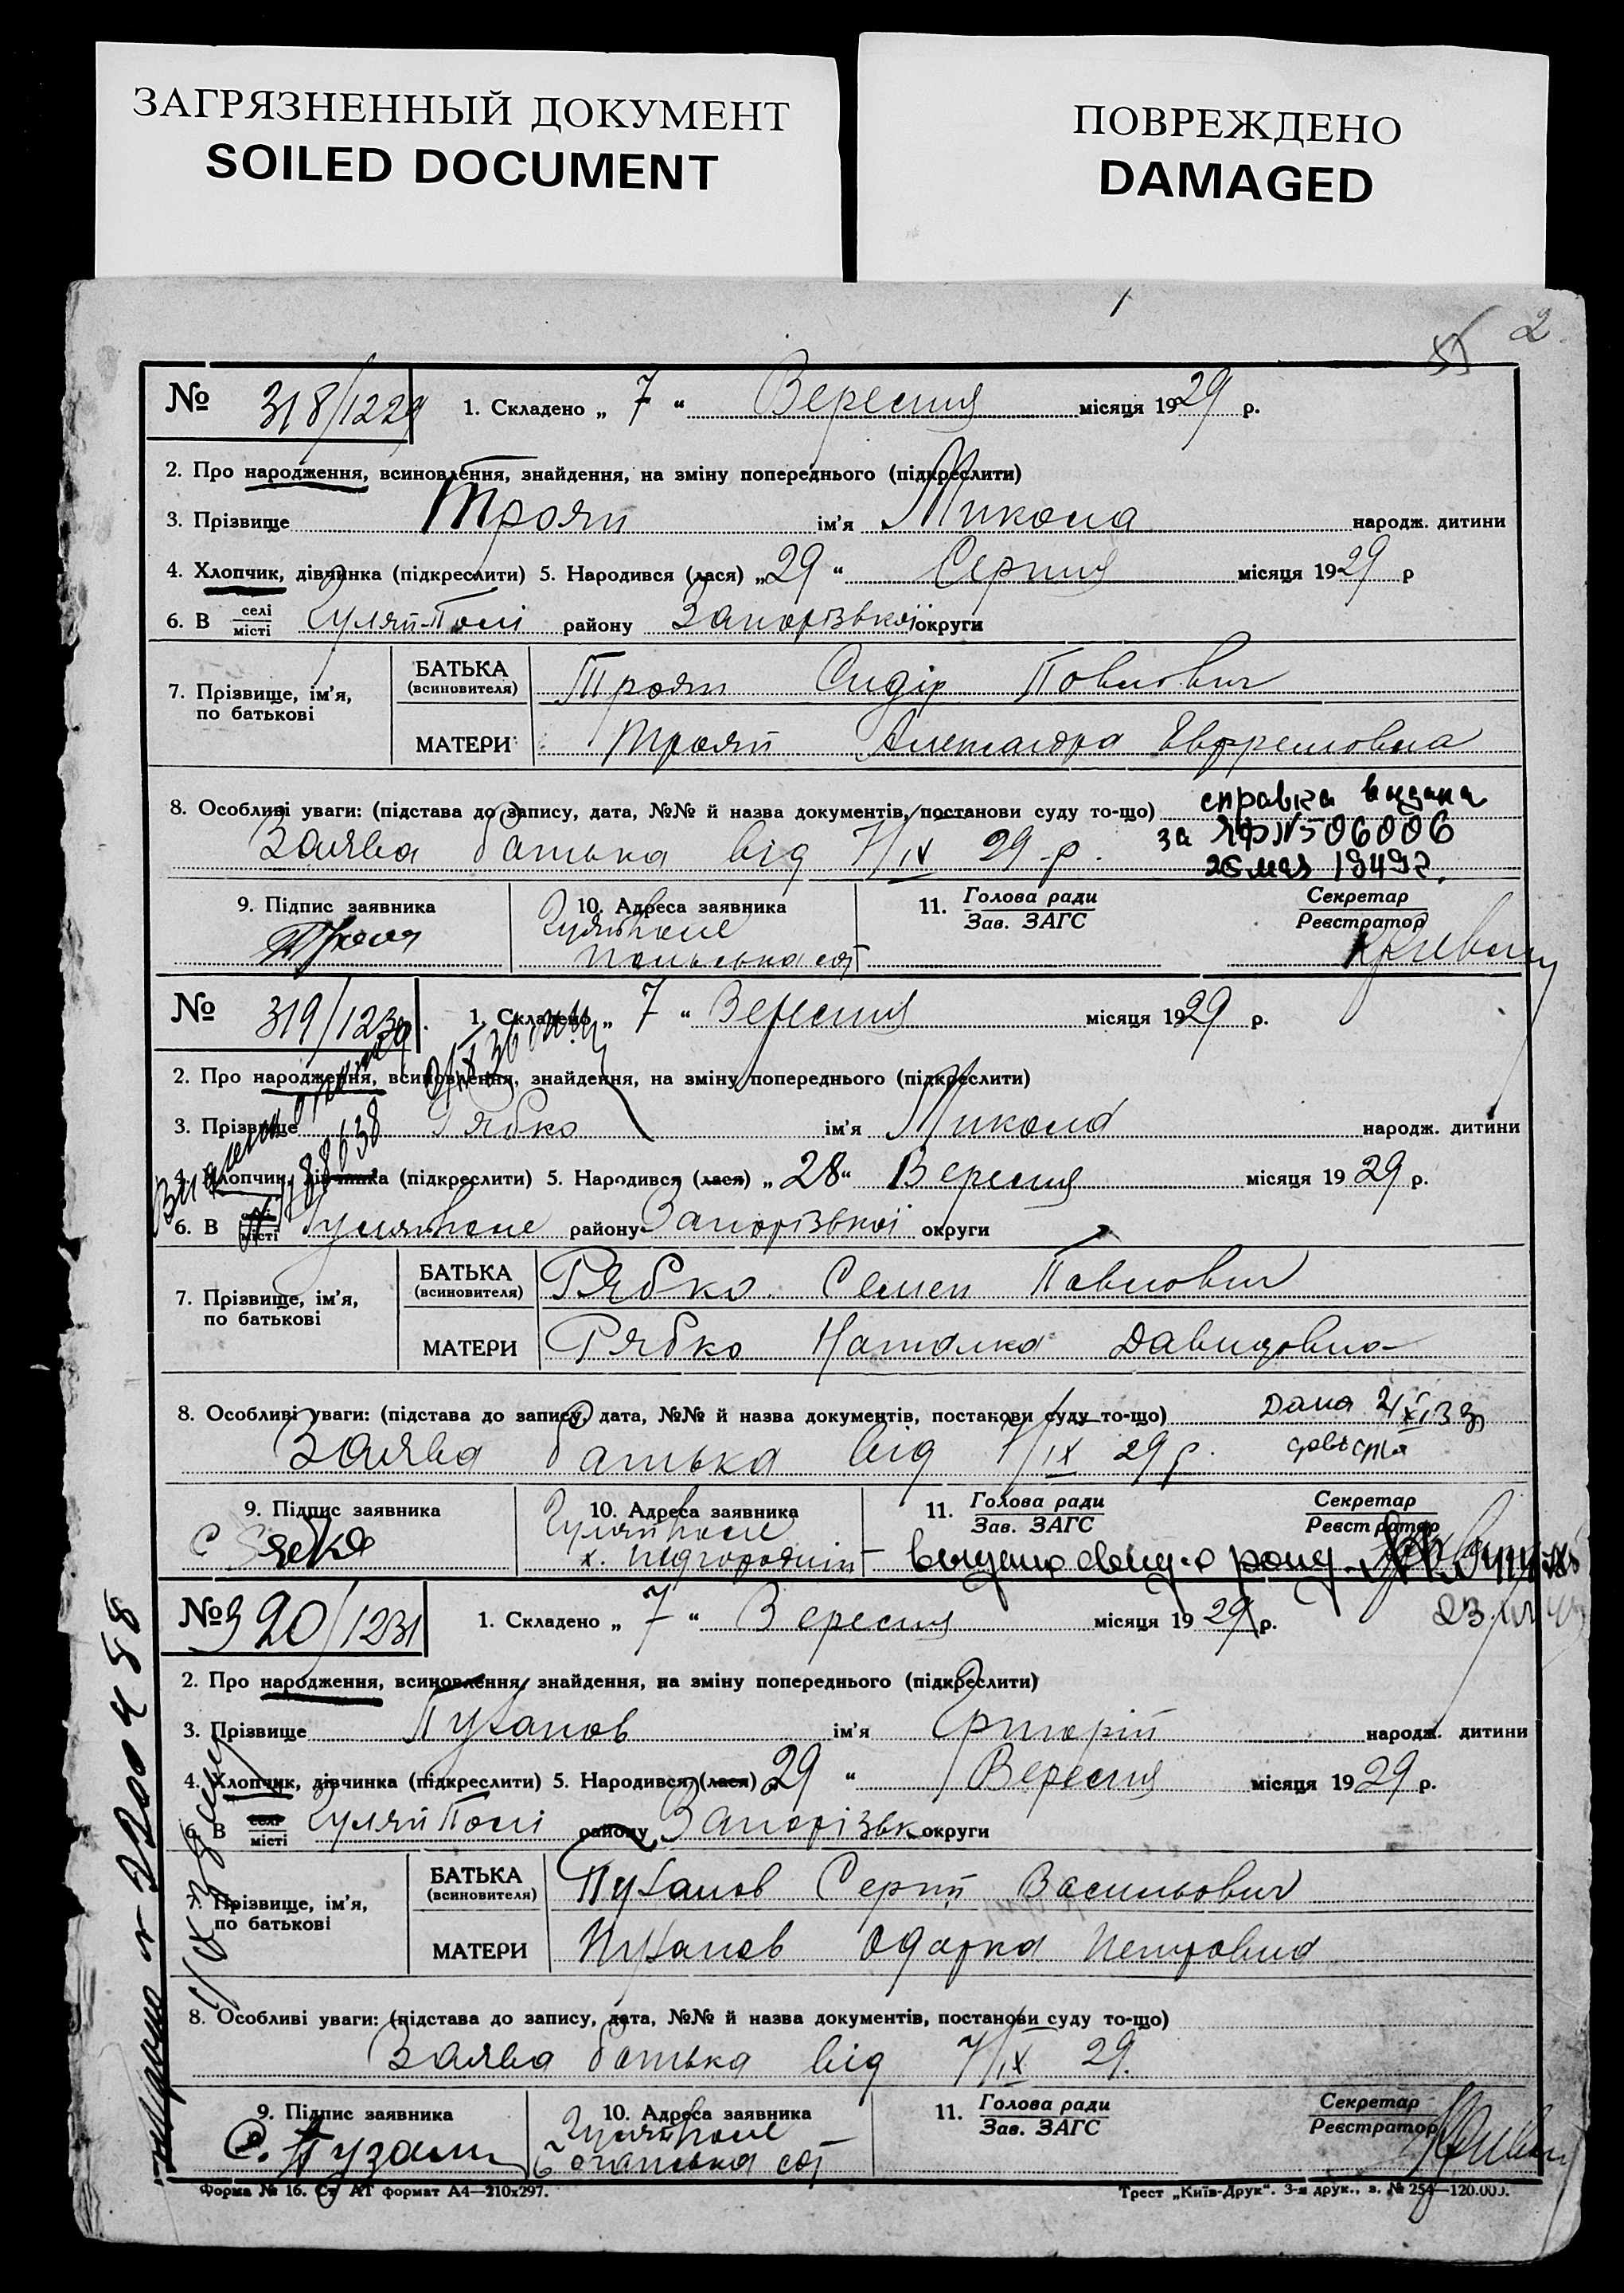 ЗАГРЯЗНЕННЫЙ ДОКУМЕНТ
SOILED DOCUMENT
ПОВРЕЖДЕНО
DAMAGED
2
№ 318/1229 1. Складено „ 7 “ Вересня місяця 1929 р.
2. Про народження, всиновлення, знайдення, на зміну попереднього (підкреслити)
3. Прізвище Троян ім’я Микола народж. дитини
4. Хлопчик, дівчинка (підкреслити) 5. Народився (лася) „29“ Серпня місяця 1929 р
6. В селі місті Гуляй-Полі району Запорізької округи
7. Прізвище, ім’я, по батькові
БАТЬКА (всиновителя) Троян Сидір Повлович
МАТЕРИ Троян Александра Евфремовна
8. Особливі уваги: (підстава до запису, дата, №№ й назва документів, постанови суду то-що) справка видана
Заява батька від 7/IX 29 р. за ЯФ№506006
26 мая 1949г.
9. Підпис заявника 10. Адреса заявника 11. Голова ради Зав. ЗАГС Секретар Реєстратор
Троян Гуляйполе
Польська сот
№ 319/1230 1. Складено „ 7 “ Вересня місяця 1929 р.
2. Про народження, всиновлення, знайдення, на зміну попереднього (підкреслити)
3. Прізвище Рябко ім’я Микола народж. дитини
4. Хлопчик, дівчинка (підкреслити) 5. Народився (лася) „ 28“ Вересня місяця 1929 р.
6. В селі місті Гуляйполе району Запорізької округи
7. Прізвище, ім’я, по батькові
БАТЬКА (всиновителя) Рябко Семен Павлович
МАТЕРИ Рябко Наталка Давидовна
8. Особливі уваги: (підстава до запису, дата, №№ й назва документів, постанови суду то-що) Дана
Заява батька від 7/IX 29 р.
9. Підпис заявника 10. Адреса заявника 11. Голова ради Зав. ЗАГС Секретар Реєстратор
С Рябко Гуляйполе
№ 320/1231 1. Складено „ 7 “ Вересня місяця 1929 р.
2. Про народження, всиновлення, знайдення, на зміну попереднього (підкреслити)
3. Прізвище Пузанов ім’я Григорій народж. дитини
4. Хлопчик, дівчинка (підкреслити) 5. Народився (лася) 29 “ Вересня місяця 1929 р.
6. В селі місті Гуляй Полі району Запорізьк округи
7. Прізвище, ім’я, по батькові
БАТЬКА (всиновителя) Пузанов Сергій Васильович
МАТЕРИ Пузанов Одарка Петровна
8. Особливі уваги: (підстава до запису, дата, №№ й назва документів, постанови суду то-що)
Заява батька від 7/IX 29.
9. Підпис заявника 10. Адреса заявника 11. Голова ради Зав. ЗАГС Секретар Реєстратор
С. Гуляйполе
сот
Форма № 16. Ст АТ формат А4—210х297. Трест „Київ-Друк“. 3-я друк., з. № 254—120.000.